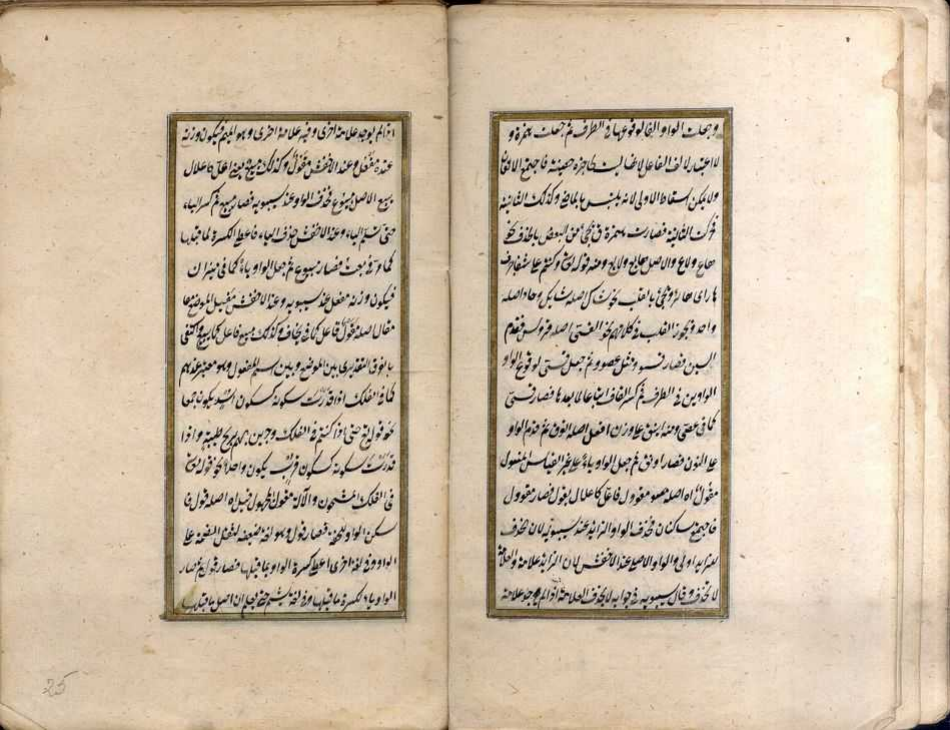 وجعلت الواو الفا لوقوعها في الطرف ثم جعلت همزة و
لا اعتبار لالف الفاعل لانها ليست بحاجزة حصينة فاجتمع الالفان
ولا يمكن اسقاط الاولى لانه يلتبس بالماضي وكذلك الثانية
فحركت الثانية فصارت همزة ويجيء في البعض بالحذف نحو
هاع ولاع والاصل هايع ولايع ومنه قوله تعالى وكنتم على شفا جرف
هار اي هائر ويجيء بالقلب نحو شاك اصله شايك وحاد اصله
واحد ويجوز القلب في كلامهم نحو القسي اصله قووس فقدم
السين فصار قسوو مثل عصوو ثم جعل قسي لوقوع الواو
الواوين في الطرف ثم كسر القاف اتباعا لما بعدها فصار قسي
كما في عصي ومنه اينق على وزن اعفل اصله انوق ثم قدم الواو
على النون فصار اونق ثم جعل الواو ياء على غير القياس المفعول
مقول اه اصله مقوول فاعل كاعلال يقول فصار مقوول
فاجتمع ساكنان فحذف الواو الزايد عند سيبويه لان الحذف
بالزايد اولى والواو الاصلي عند الاخفش لان الزايد علامة والعلامة
لا تحذف وقال سيبويه في جوابه لا تحذف العلامة اذا لم يوجد علامة
اذا لم يوجد علامة اخرى وفيه علامة اخرى وهو الميم فيكون وزنه
عنده مفعل وعند الاخفش مفول وكذلك مبيع يعني اعل كاعلال
يبيع الاصل مبيوع فحذف الواو عند سيبويه فصار مبيع ثم كسر الباء
حتى تسلم الياء وعند الاخفش حذف الياء فاعطي الكسرة لما قبلها
كما في بعت فصار مبوع ثم جعل الواو ياء كما في ميزان
فيكون وزنه مفعل عند سيبويه وعند الاخفش مفيل الموضع
مقال اصله مقول فاعل كما في يخاف وكذلك مبيع فاعل كما يبيع واكتفي
بالفرق التقديري بين الموضع وبين اسم المفعول وهو معتبر عندهم
كما في الفلك اذا قدرت سكونه كسكون اسد يكون جمعا
نحو قوله تعالى حتى اذا كنتم في الفلك وجرين بهم بريح طيبة واذا
قدرت سكونه كسكون قرب يكون واحدا نحو قوله تعالى
في الفلك المشحون والآلة مقول المجهول قيل اه اصله قول
سكن الواو للخفة فصار قول وهو لغة ضعيفة لثقل الضمة على
الواو وفي لغة اخرى اعطي كسرة الواو لما قبلها فصار قول ثم صار
الواو ياء لكسرة ما قبلها وفي لغة يشم حتى يعلم ان اصل ما قبلها
25